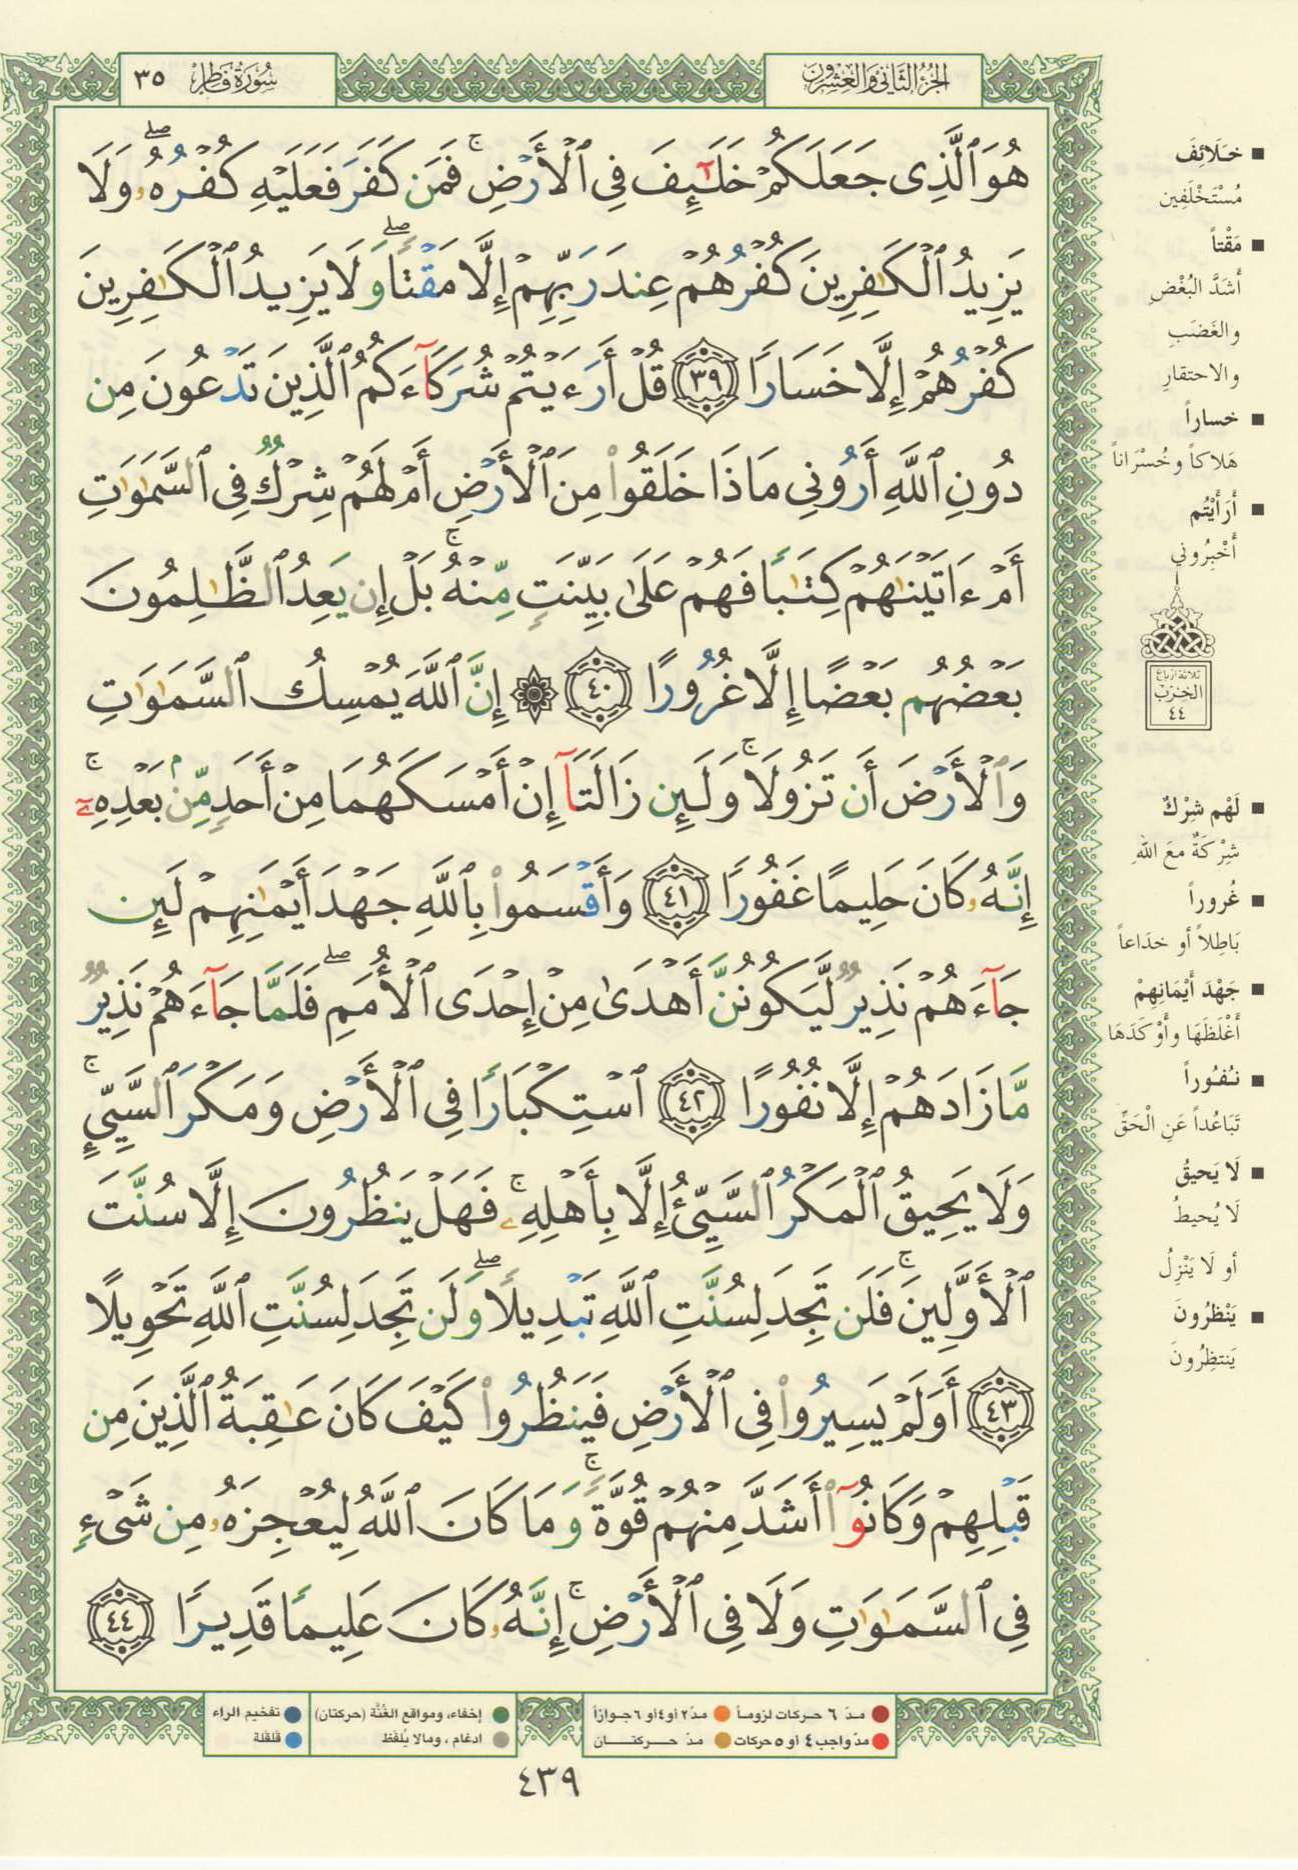 سُورَةُ فَاطِر ٣٥
الجُزءُ الثَّانِي وَالعِشرُون
هُوَ ٱلَّذِى جَعَلَكُمْ خَلَٰٓئِفَ فِى ٱلْأَرْضِ ۚ فَمَن كَفَرَ فَعَلَيْهِ كُفْرُهُۥ ۖ وَلَا
يَزِيدُ ٱلْكَٰفِرِينَ كُفْرُهُمْ عِندَ رَبِّهِمْ إِلَّا مَقْتًا ۖ وَلَا يَزِيدُ ٱلْكَٰفِرِينَ
كُفْرُهُمْ إِلَّا خَسَارًا ٣٩ قُلْ أَرَءَيْتُمْ شُرَكَآءَكُمُ ٱلَّذِينَ تَدْعُونَ مِن
دُونِ ٱللَّهِ أَرُونِى مَاذَا خَلَقُوا۟ مِنَ ٱلْأَرْضِ أَمْ لَهُمْ شِرْكٌ فِى ٱلسَّمَٰوَٰتِ
أَمْ ءَاتَيْنَٰهُمْ كِتَٰبًا فَهُمْ عَلَىٰ بَيِّنَتٍ مِّنْهُ ۚ بَلْ إِن يَعِدُ ٱلظَّٰلِمُونَ
بَعْضُهُم بَعْضًا إِلَّا غُرُورًا ٤٠ ۞ إِنَّ ٱللَّهَ يُمْسِكُ ٱلسَّمَٰوَٰتِ
وَٱلْأَرْضَ أَن تَزُولَا ۚ وَلَئِن زَالَتَآ إِنْ أَمْسَكَهُمَا مِنْ أَحَدٍ مِّنۢ بَعْدِهِۦٓ ۚ
إِنَّهُۥ كَانَ حَلِيمًا غَفُورًا ٤١ وَأَقْسَمُوا۟ بِٱللَّهِ جَهْدَ أَيْمَٰنِهِمْ لَئِن
جَآءَهُمْ نَذِيرٌ لَّيَكُونُنَّ أَهْدَىٰ مِنْ إِحْدَى ٱلْأُمَمِ ۖ فَلَمَّا جَآءَهُمْ نَذِيرٌ
مَّا زَادَهُمْ إِلَّا نُفُورًا ٤٢ ٱسْتِكْبَارًا فِى ٱلْأَرْضِ وَمَكْرَ ٱلسَّيِّئِ ۚ
وَلَا يَحِيقُ ٱلْمَكْرُ ٱلسَّيِّئُ إِلَّا بِأَهْلِهِۦ ۚ فَهَلْ يَنظُرُونَ إِلَّا سُنَّتَ
ٱلْأَوَّلِينَ ۚ فَلَن تَجِدَ لِسُنَّتِ ٱللَّهِ تَبْدِيلًا ۖ وَلَن تَجِدَ لِسُنَّتِ ٱللَّهِ تَحْوِيلًا
٤٣ أَوَلَمْ يَسِيرُوا۟ فِى ٱلْأَرْضِ فَيَنظُرُوا۟ كَيْفَ كَانَ عَٰقِبَةُ ٱلَّذِينَ مِن
قَبْلِهِمْ وَكَانُوٓا۟ أَشَدَّ مِنْهُمْ قُوَّةً ۚ وَمَا كَانَ ٱللَّهُ لِيُعْجِزَهُۥ مِن شَىْءٍ
فِى ٱلسَّمَٰوَٰتِ وَلَا فِى ٱلْأَرْضِ ۚ إِنَّهُۥ كَانَ عَلِيمًا قَدِيرًا ٤٤
■ خَلَائِفَ
مُسْتَخْلَفِين
■ مَقْتاً
أَشَدَّ البُغْضِ
والغَضَبِ
والاحتقارِ
■ خساراً
هَلاكاً وخُسْرَاناً
■ أَرَأَيْتُم
أَخْبِرُوني
ثلاثة أرباع
الحزب
٤٤
■ لَهُم شِرْكٌ
شِرْكَةٌ مَعَ اللهِ
■ غُروراً
بَاطِلاً أو خدَاعاً
■ جَهْدَ أَيْمَانِهِمْ
أَغْلَظَهَا وأَوْكَدَهَا
■ نُفُوراً
تَبَاعُداً عَنِ الْحَقِّ
■ لَا يَحيقُ
لَا يُحيطُ
أو لَا يَنْزِلُ
■ يَنْظرُونَ
يَنتظِرُونَ
مدّ ٦ حركات لزوماً مدّ ٢ أو ٤ أو ٦ جوازاً إخفاء، ومواقع الغُنَّة (حركتان) تفخيم الراء
مدّ واجب ٤ أو ٥ حركات مدّ حركتان ادغام، ومالا يُلفَظ قلقلة
٤٣٩